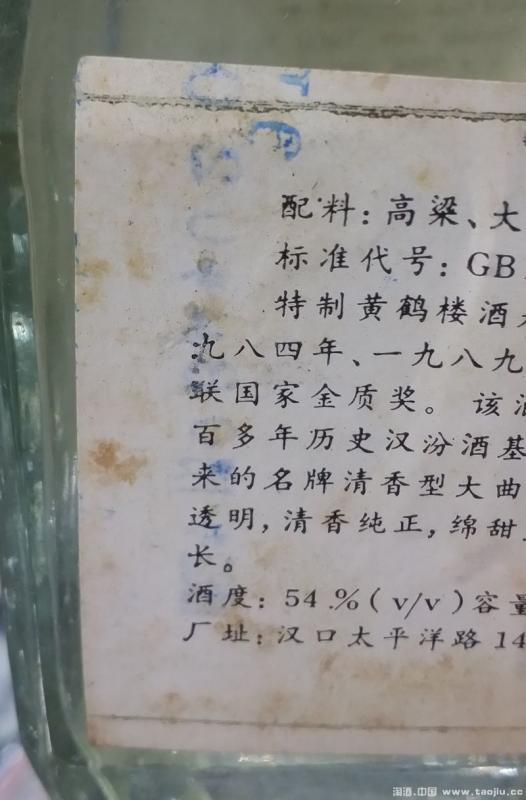 配料:高梁、大
标准代号:GB
特制黄鹤楼酒
九八四年、一九八九
联国家金质奖。该
百多年历史汉汾酒基
来的名牌清香型大曲
透明,清香纯正,绵甜
长。
酒度:54.%(v/v)容量
厂址:汉口太平洋路14
淘酒.中国 www.taojiu.cc